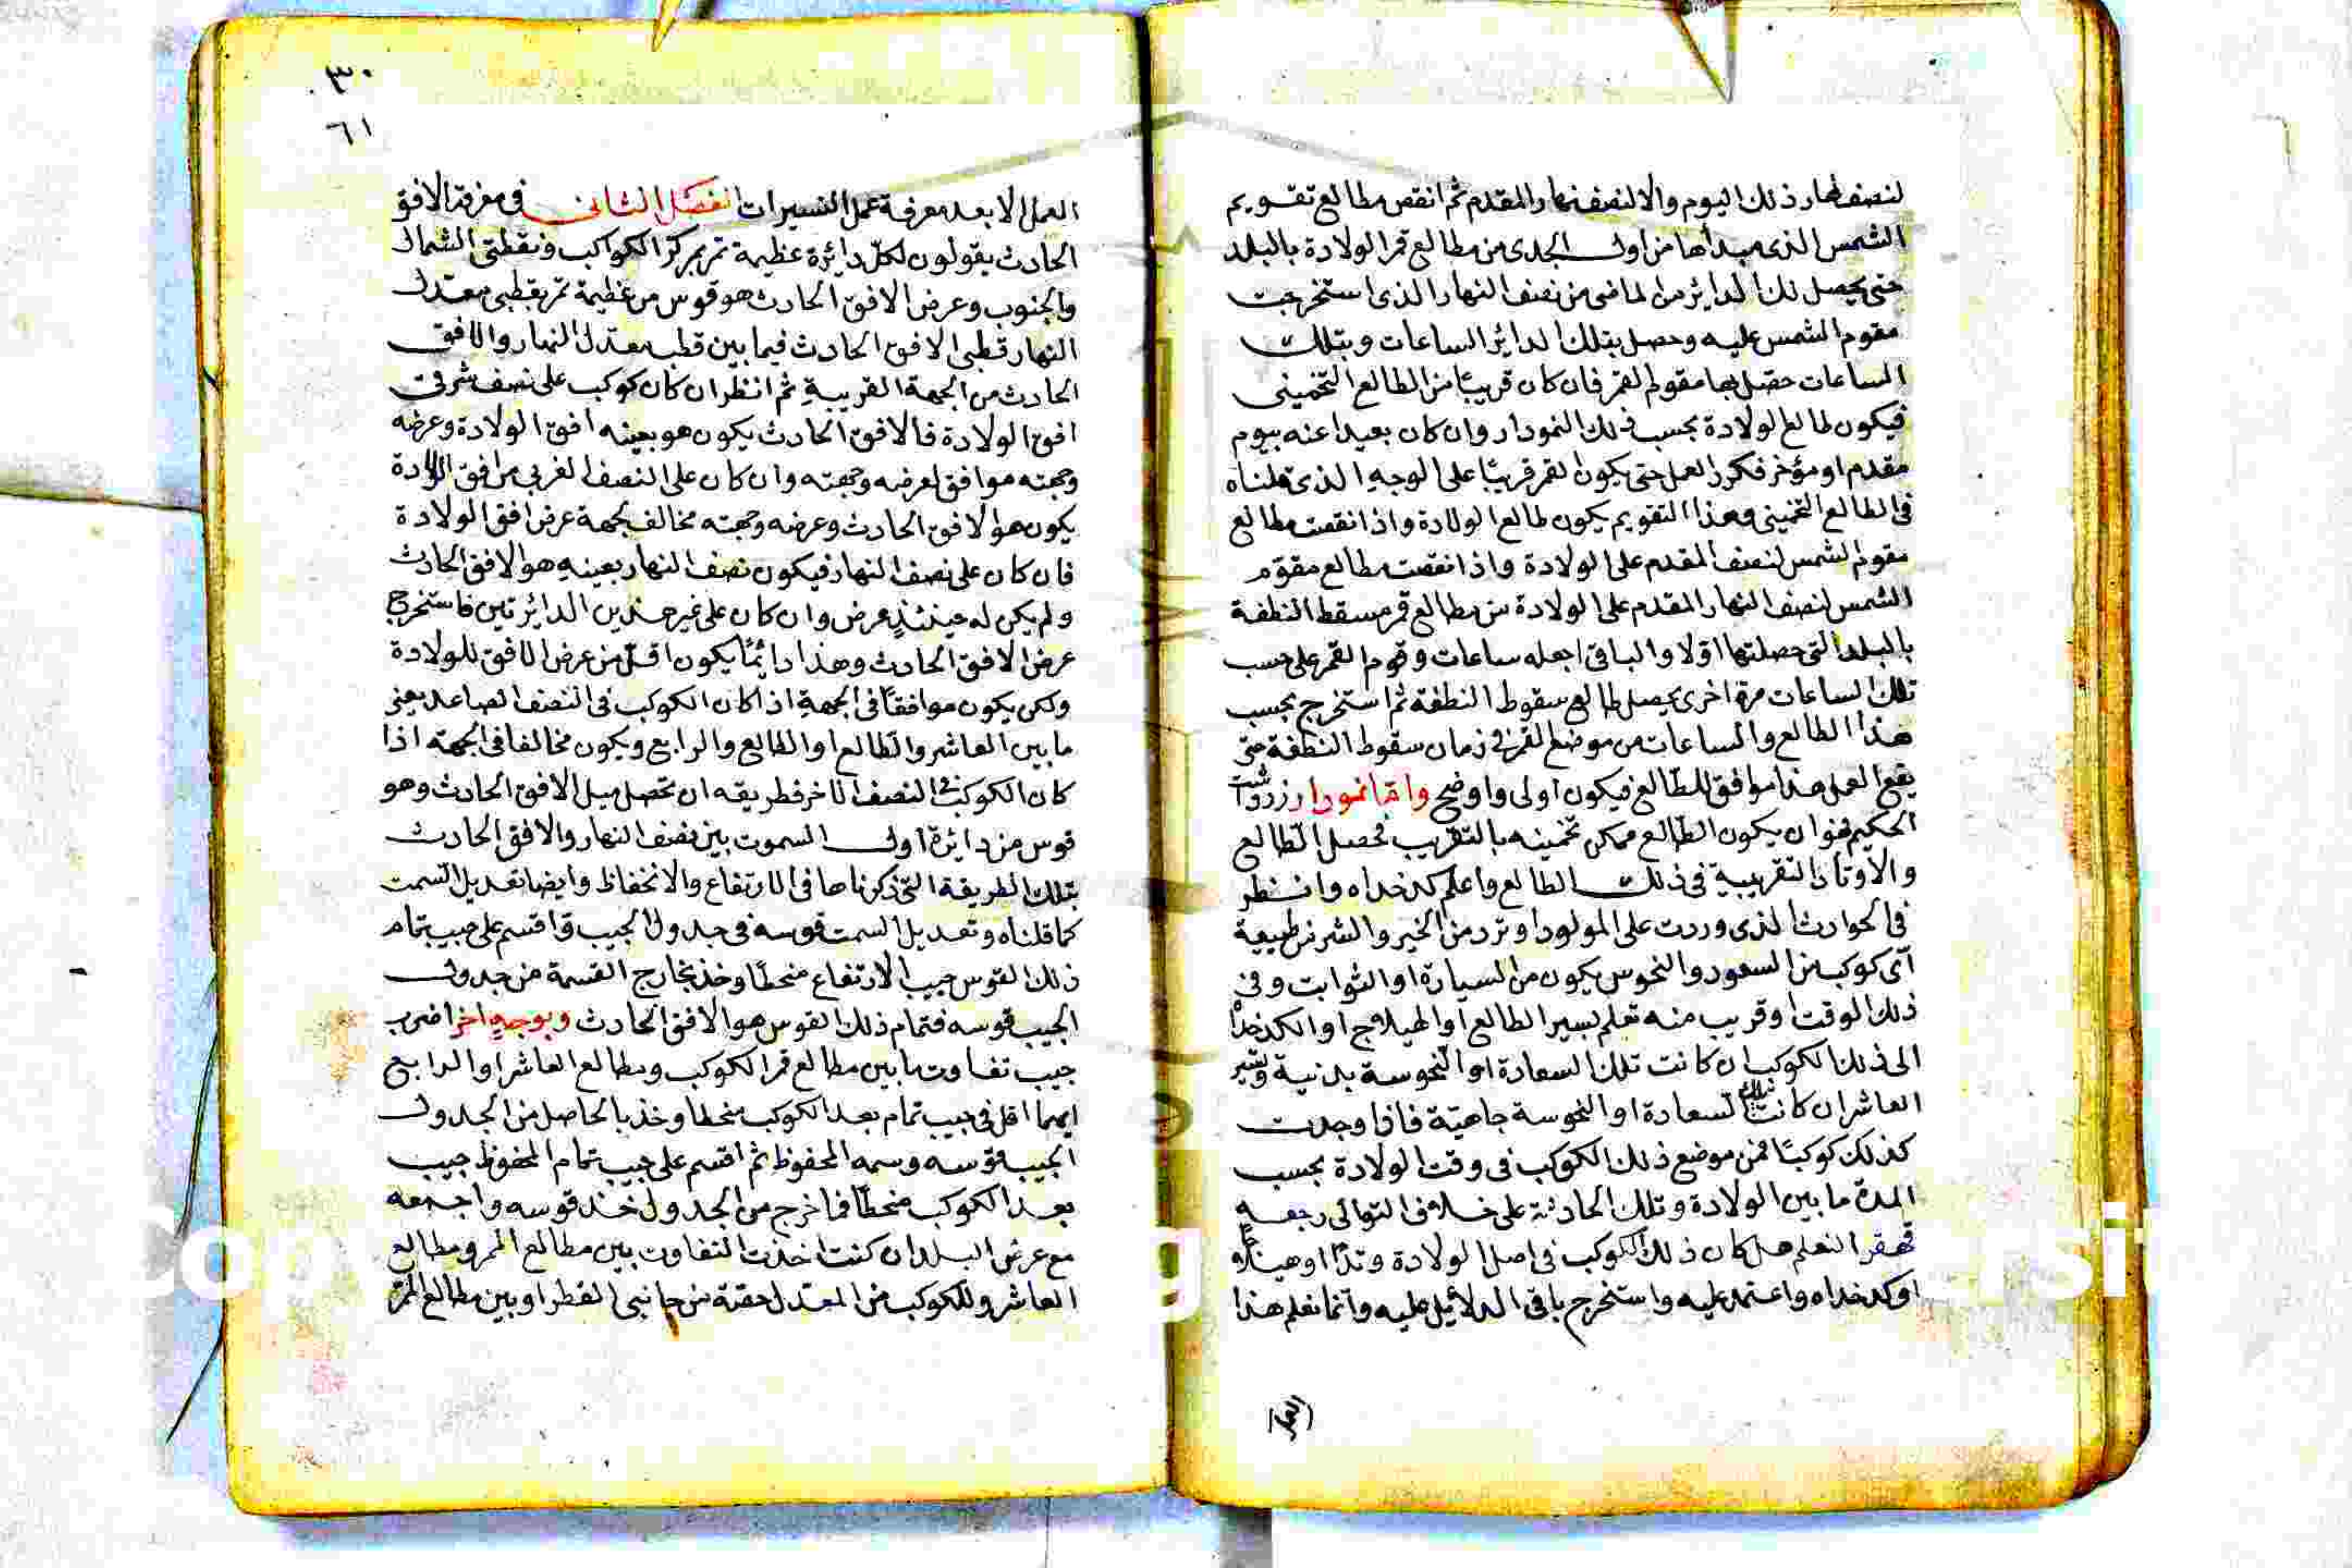 لنصف نهار ذلك اليوم والا لنصف نهار المقدم ثم انقص مطالع تقويم
الشمس الذى مبدأها من اول الجدى من مطالع قمر الولادة بالبلد
حتى يحصل لك الدائر من الماضى من نصف النهار الذى استخرجت
مقوم الشمس عليه وحصل بتلك الدائر الساعات وبتلك
الساعات حصّل بها مقوم القمر فان كان قريبًا من الطالع التخمينى
فيكون طالع الولادة بحسب ذلك النمودار وان كان بعيدا عنه بيوم
مقدم او مؤخر فكرر العمل حتى يكون القمر قريبًا على الوجه الذى قلناه
فى الطالع التخمينى وهذا التقويم يكون طالع الولادة واذا نقصت مطالع
مقوم الشمس لنصف المقدم على الولادة واذا نقصت مطالع مقوّم
الشمس لنصف النهار المقدم على الولادة من مطالع قمر مسقط النطفة
بالبلد التى حصلتها اوّلا والباقى اجعله ساعات وقوم القمر على حسب
تلك الساعات مرة اخرى يحصل طالع سقوط النطفة ثم استخرج بحسب
هذا الطالع والساعات من موضع القمر فى زمان سقوط النطفة حتى
يقع العمل هذا موافق للطّالع فيكون اولى واوضح وامّا نمودار زردوشت
الحكيم فهو ان يكون الطّالع ممكن تخمينه بالتقريب فحصل الطّالع
والاوتاد التقريبية فى ذلك الطالع واعلم كدخداه وانظر
فى الحوادث الذى وردت على المولود او ترد من الخير والشر من طبيعة
اىّ كوكب من السعود والنحوس يكون من السيارة او الثوابت وفى
ذلك الوقت او قريب منه تعلم تسير الطالع او الهيلاج او الكدخداه
الى ذلك الكوكب ان كانت تلك السعادة او النحوسة بدنية وتسير
العاشر ان كانت تلك السعادة او النحوسة جاهيّة فاذا وجدت
كذلك كوكبًا فمن موضع ذلك الكوكب فى وقت الولادة بحسب
المدة ما بين الولادة وتلك الحادثة على خلاف التوالى رجعه
قهقرا لتعلم هل كان ذلك الكوكب فى اصل الولادة وتدًا او هيلاجا
او كدخداه واعتمد عليه واستخرج باقى الدلائل عليه وانما نعلم هذا
العمل
٣٠
٦١
العمل الا بعد معرفة عمل التسييرات الفصل الثانى فى معرفة الافق
الحادث يقولون لكلّ دائرة عظيمة تمر بمركز الكواكب ونقطتى الشمال
والجنوب وعرض الافق الحادث هو قوس من عظيمة تمر بقطبى معدل
النهار قطبى الافق الحادث فيما بين قطب معدل النهار والافق
الحادث من الجهة القريبة ثم انظر ان كان كوكب على نصف شرقى
افق الولادة فالافق الحادث يكون هو بعينه افق الولادة وعرضه
وجهته موافق لعرضه وجهته وان كان على النصف الغربي من افق الولادة
يكون هو الافق الحادث وعرضه وجهته مخالف لجهة عرض افق الولادة
فان كان على نصف النهار فيكون نصف النهار بعينه هو الافق الحادث
ولم يكن له حينئذٍ عرض وان كان على غير هذين الدائرتين فاستخرج
عرض الافق الحادث وهذا دائمًا يكون اقلّ من عرض الافق للولادة
ولكن يكون موافقًا فى الجهة اذا كان الكوكب فى النصف الصاعد يعنى
ما بين العاشر والطالع او الطالع والرابع ويكون مخالفا فى الجهة اذا
كان الكوكب فى النصف الاخر فطريقه ان تحصل ميل الافق الحادث وهو
قوس من دائرة اول السموت بين نصف النهار والافق الحادث
بتلك الطريقة التى ذكرناها فى الارتفاع والانخفاظ وايضا تعديل السمت
كما قلناه وتعديل السمت قوسه فى جدول الجيب واقسم على جيب تمام
ذلك القوس جيب الارتفاع منحطًا وخذ بخارج القسمة من جدول
الجيب قوسه فتمام ذلك القوس هو الافق الحادث وبوجه اخر اضرب
جيب تفاوت ما بين مطالع قمر الكوكب ومطالع العاشر او الرابع
ايهما اقل فى جيب تمام بعد الكوكب منحطا وخذ بالحاصل من الجدول
الجيب قوسه وسمه المحفوظ ثم اقسم على جيب تمام المحفوظ جيب
بعد الكوكب منحطًا فما خرج من الجدول خذ قوسه واجمعه
مع عرض البلد ان كنت اخذت التفاوت بين مطالع الممر ومطالع
العاشر وللكوكب من المعدل حقة من جانبى القطر او بين مطالع الممر